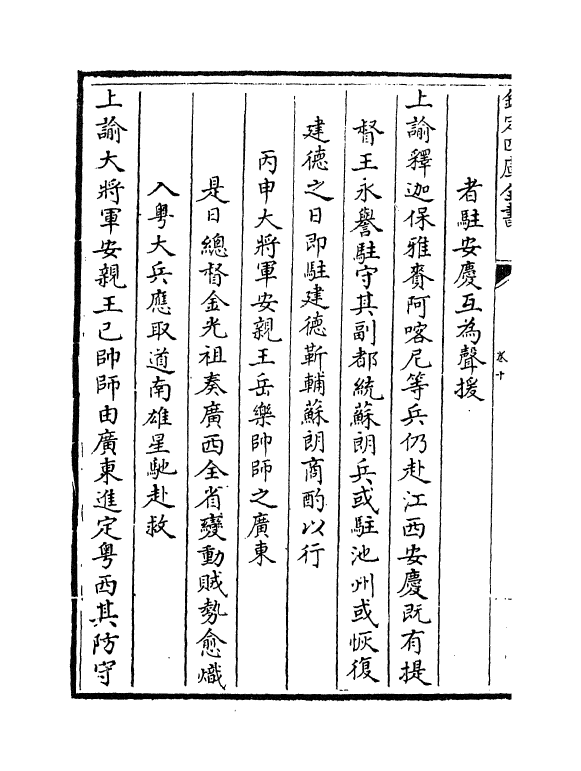 欽定四庫全書
卷十
者駐安慶互為聲援
上諭釋迦保雅賚阿喀尼等兵仍赴江西安慶既有提
督王永譽駐守其副都統蘇朗兵或駐池州或恢復
建德之日即駐建德靳輔蘇朗商酌以行
丙申大將軍安親王岳樂帥師之廣東
是日總督金光祖奏廣西全省變動賊勢愈熾
入粵大兵應取道南雄星馳赴救
上諭大將軍安親王已帥師由廣東進定粵西其防守